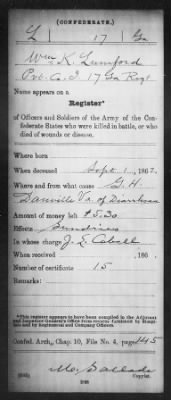 (CONFEDERATE.)
L 17 Ga
Wm K. Lumford
Pvt. Co. I 17 Ga Regt
Name appears on a
Register*
of Officers and Soldiers of the Army of the Con-
federate States who were killed in battle, or who
died of wounds or disease.
Where born
When deceased Sept. 1, 1862.
Where and from what cause G. H.
Danville Va. of Diarrhoea
Amount of money left $5.30
Effects Sundries
In whose charge J. E.
When received , 186 .
Number of certificate 15
Remarks:
*This register appears to have been compiled in the Adjutant
and Inspector General's Office from returns furnished by Hospi-
tals and by Regimental and Company Officers.
Confed. Arch., Chap. 10, File No. 4, page 145
Copyist.